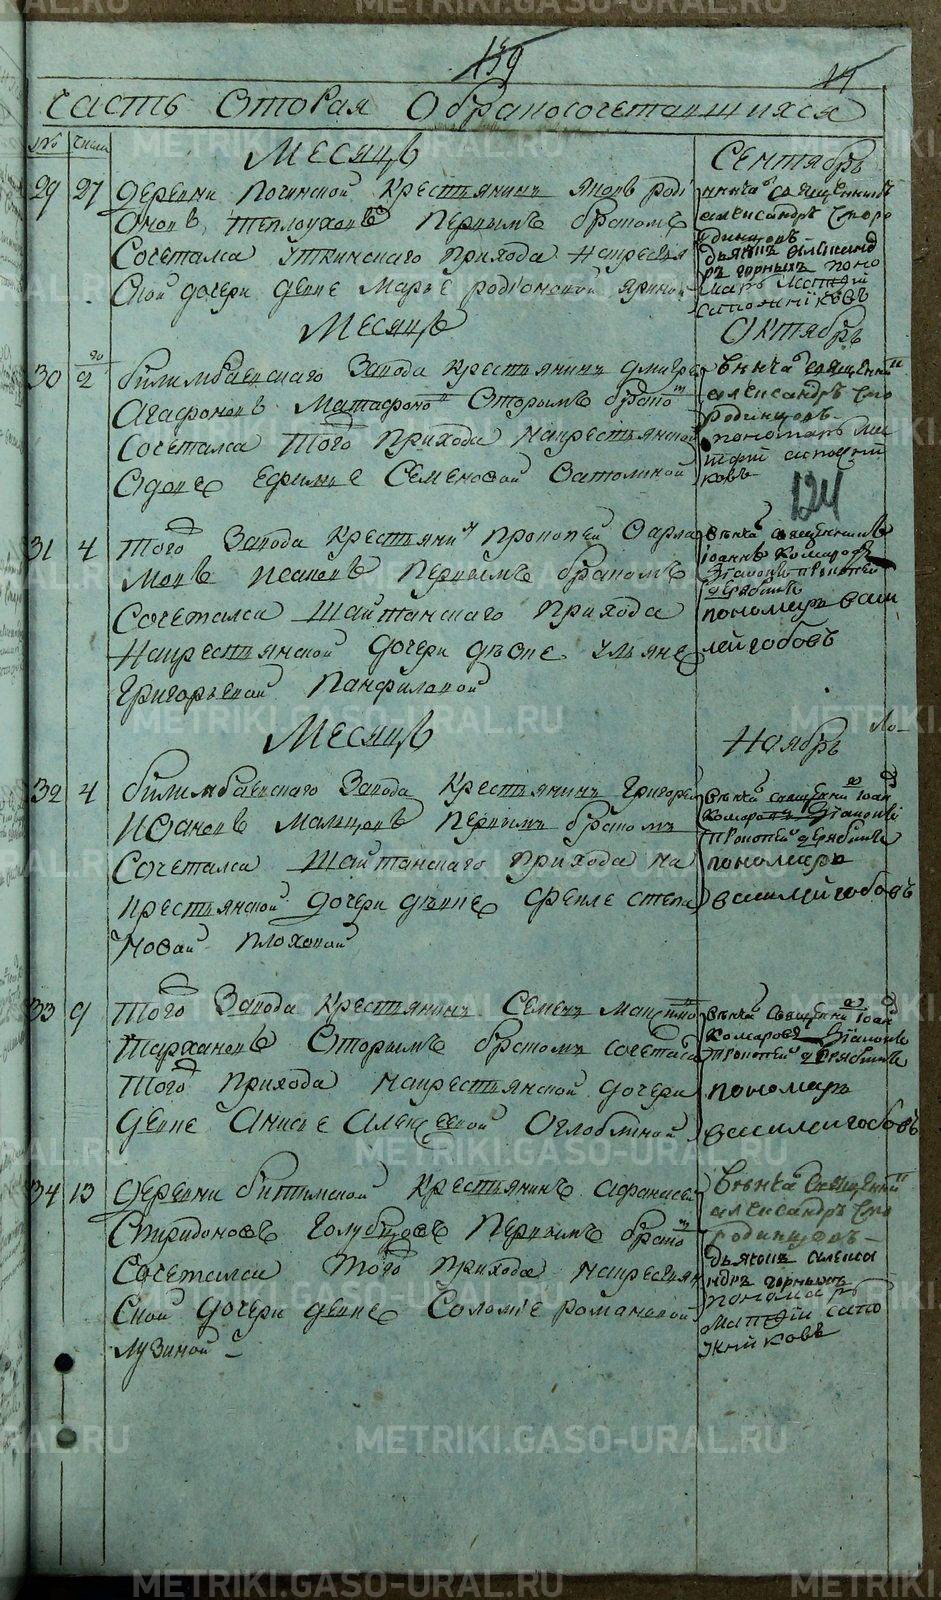 METRIKI.GASO-URAL.RU
139
Часть вторая о бракосочетавшихся
№ Число
Месяцъ Сентябрь
29 27 деревни крестьянинъ Яковъ Роді
оновъ Теплоуховъ первымъ бракомъ
сочетался Уткинскаго прихода на крестья
ской дочери девке Марье Родионовой
венча священникъ
александръ
дьяконъ александ
ръ горныхъ поно
марь матфий
сапожниковъ
Месяцъ Октябрь
30 2 билимбаевскаго Завода крестьянинъ дмитре
Агафоновъ вторымъ брако м
сочетался того прихода на крестьянской
вдове Ефимье Семеновой Ватолиной
венча священни
александръ Сто
родинцовъ
пономарь ма
тфий сапожни
ковъ
124
31 4 того Завода крестьяни н прокопей Варла
мовъ Исаковъ первымъ бракомъ
сочетался Шайтанскаго прихода
на крестьянской дочери девке ульяне
григорьевой Панфиловой
венча священникъ
Iоаннъ Комаровъ
Дiаконъ прокопей
дерябинъ
пономарь васи
лей гобовъ
Месяцъ Ноябрь
32 4 билимбаевскаго Завода крестьянинъ григорей
Ивановъ Мальцовъ первымъ бракомъ
сочетался Шайтанскаго прихода на
крестьянской дочери девке фекле степа
новой плоховой
венча священни Iоан
Комаровъ Дiаконъ
прокопей дерябинъ
пономарь
василей гобовъ
33 9 того Завода крестьянинъ Семенъ Максимо
Тархановъ вторымъ бракомъ сочетался
того прихода на крестьянской дочери
девке Анисье Алексеевой Оглоблиной
венча священни Iоан
Комаровъ Дiаконъ
прокопей дерябинъ
пономарь
василей гобовъ
34 13 деревни битимской крестьянинъ афанасей
Спиридоновъ Голубцовъ первымъ брако м
сочетался того прихода на крестьян
ской дочери девке Соломiе романовой
лузиной
венча священни
александръ Сто
родинцовъ
дьяконъ алекса
ндръ горныхъ
пономарь
матфiй сапо
жниковъ